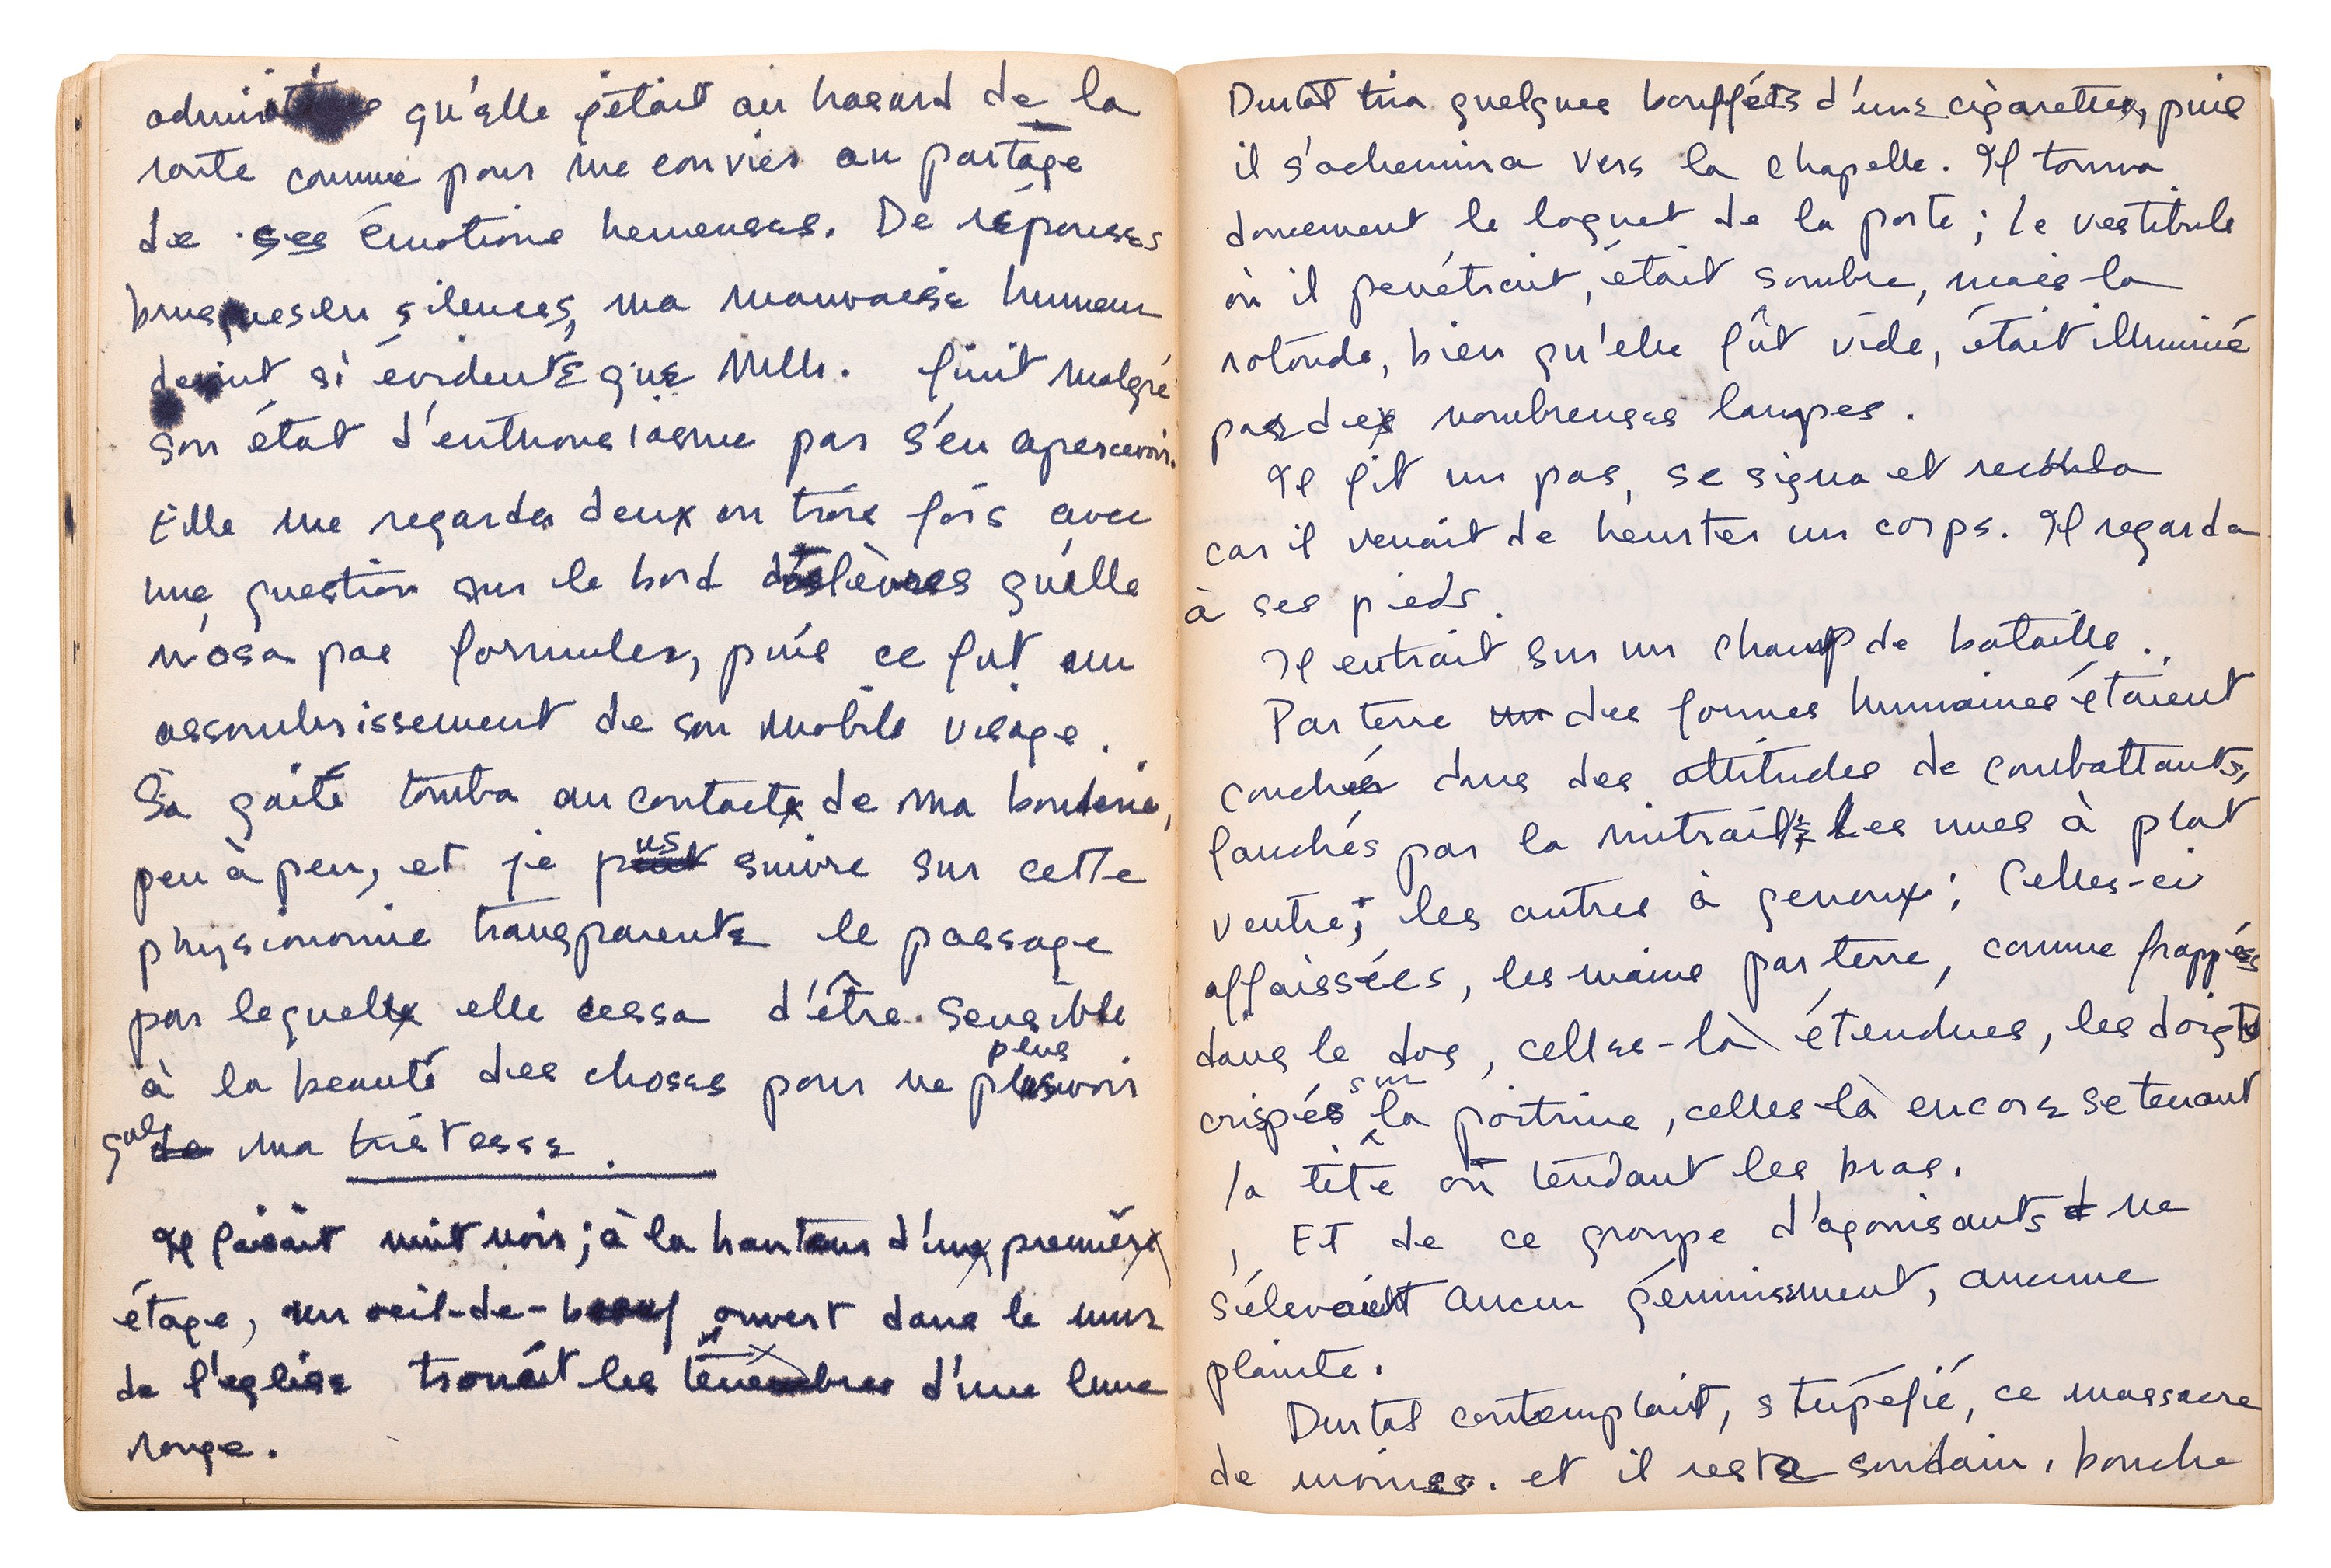 qu'elle jetait au hasard de la
route comme pour me convier au partage
de ses émotions heureuses. De réponses
brusques en silences, ma mauvaise humeur
devint si évidente que Mlle. finit malgré
son état d'enthousiasme par s'en apercevoir.
Elle me regarda deux ou trois fois avec
une question sur le bord des lèvres qu'elle
n'osa pas formuler, puis ce fut un
assombrissement de son mobile visage.
Sa gaité tomba au contact de ma bouderie,
peu à peu, et je pus suivre sur cette
physionomie transparente le passage
par lequel elle cessa d'être sensible
à la beauté des choses pour ne plus voir
que ma tristesse.
Il faisait nuit noir; à la hauteur d'un premier
étage, un œil-de-boeuf ouvert dans le mur
de l'eglise trouait les ténèbres d'une lune
rouge.
Durtal tira quelques bouffées d'une cigarette, puis
il s'achemina vers la chapelle. Il tourna
doucement le loquet de la porte; le vestibule
où il penétrait, était sombre, mais la
rotonde, bien qu'elle fût vide, était illuminé
par de nombreuses lampes.
Il fit un pas, se signa et recula
car il venait de heurter un corps. Il regarda
à ses pieds.
Il entrait sur un champ de bataille.
Par terre des formes humaines étaient
couchées dans des attitudes de combattants,
fauchés par la mitraille; les unes à plat
ventre; les autres à genoux; Celles-ci
affaissées, les mains par terre, comme frappées
dans le dos, celles-là étendues, les doigts
crispés sur la poitrine, celles-là encore se tenant
la tête ou tendant les bras.
Et de ce groupe d'agonisants ne
s'élevait aucun gémissement, aucune
plainte.
Durtal contemplait, stupéfié, ce massacre
de moines. et il resta soudain, bouche